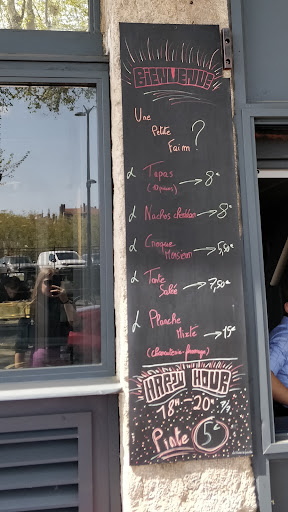 BIENVENUE
Une
Petite
Faim ?
Tapas → 8€
Nachos cheddar → 8€
Croque
Monsieur → 5,50€
Tarte
Salée → 7,50€
Planche
Mixte → 15€
(charcuterie-fromage)
HAPPY HOUR
18H - 20H
Pinte 5€